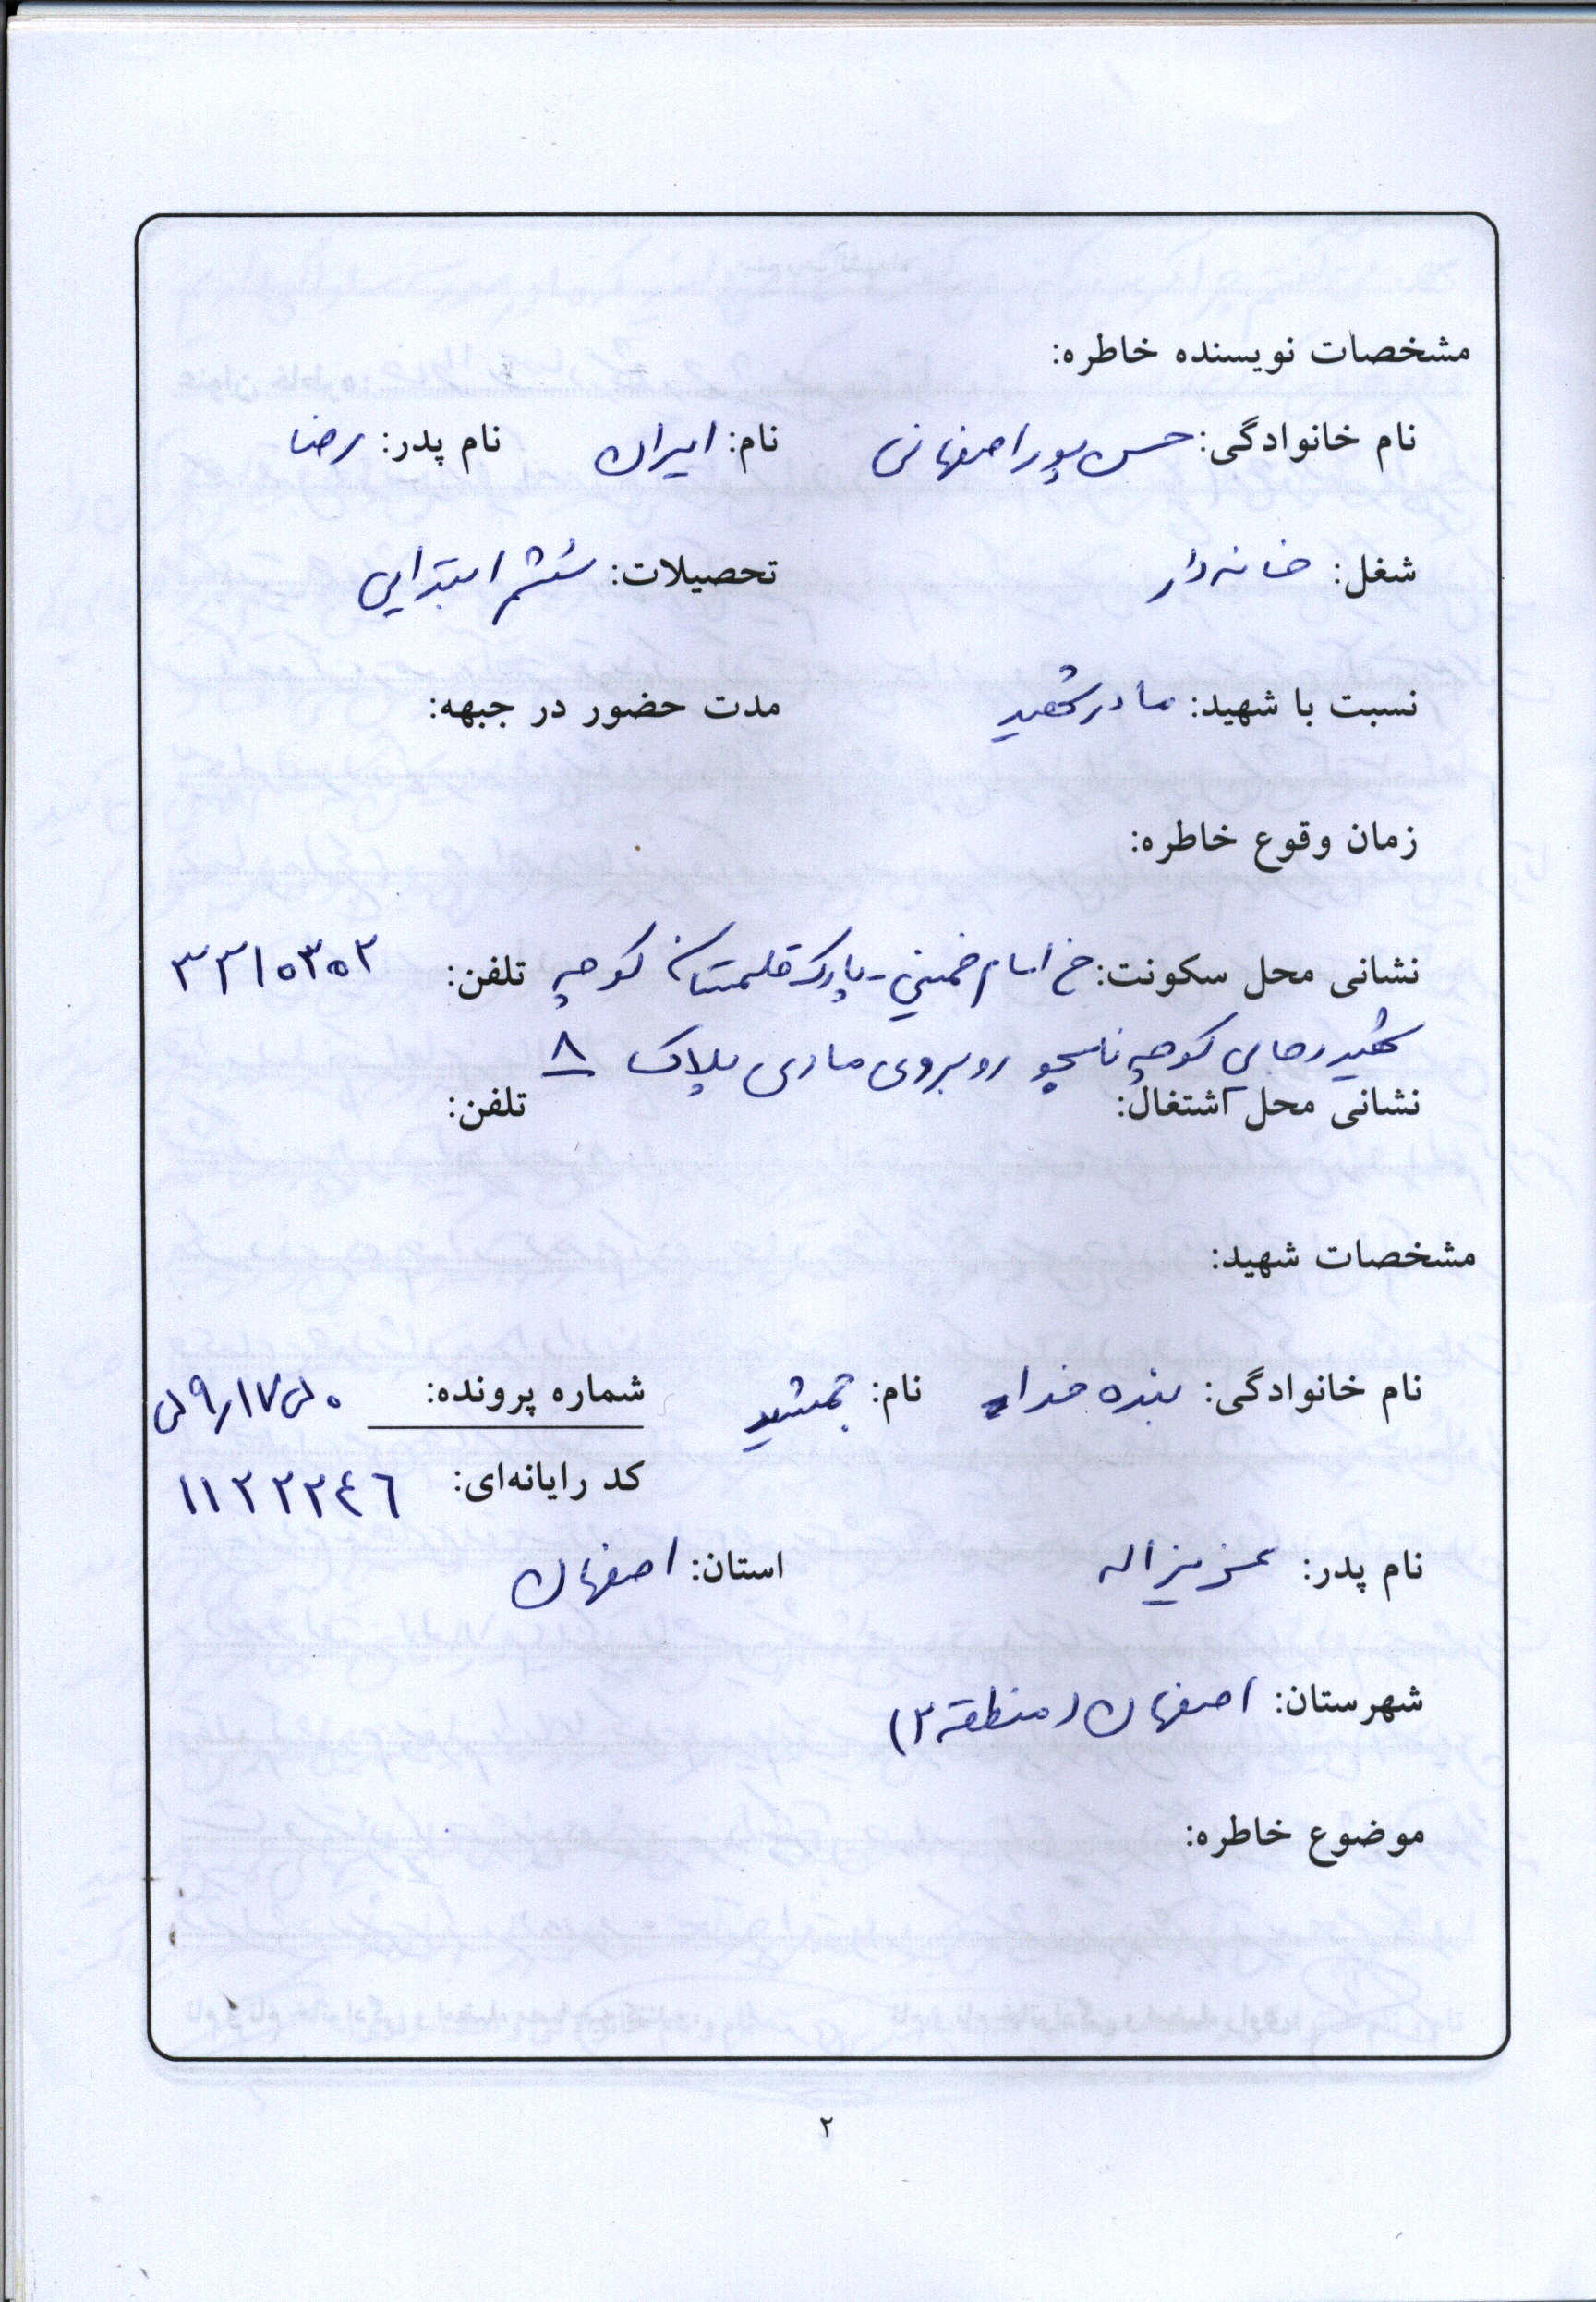 مشخصات نویسنده خاطره:
نام خانوادگی: حسن پور اصفهانی نام: ایران نام پدر: رضا
شغل: خانه دار تحصیلات: ششم ابتدایی
نسبت با شهید: مادر شهید مدت حضور در جبهه:
زمان وقوع خاطره:
نشانی محل سکونت: خ امام خمینی - پارک قلمستان کوچه تلفن: ۳۳۱۰۳۰۲
شهید رجایی کوچه روبروی مادی پلاک ۸
نشانی محل اشتغال: تلفن:
مشخصات شهید:
نام خانوادگی: بنده خدا نام: جمشید شماره پرونده:
کد رایانه‌ای: ۱۱۲۲۲۴۶
نام پدر: عزیزاله استان: اصفهان
شهرستان: اصفهان (منطقه ۲)
موضوع خاطره:
۲